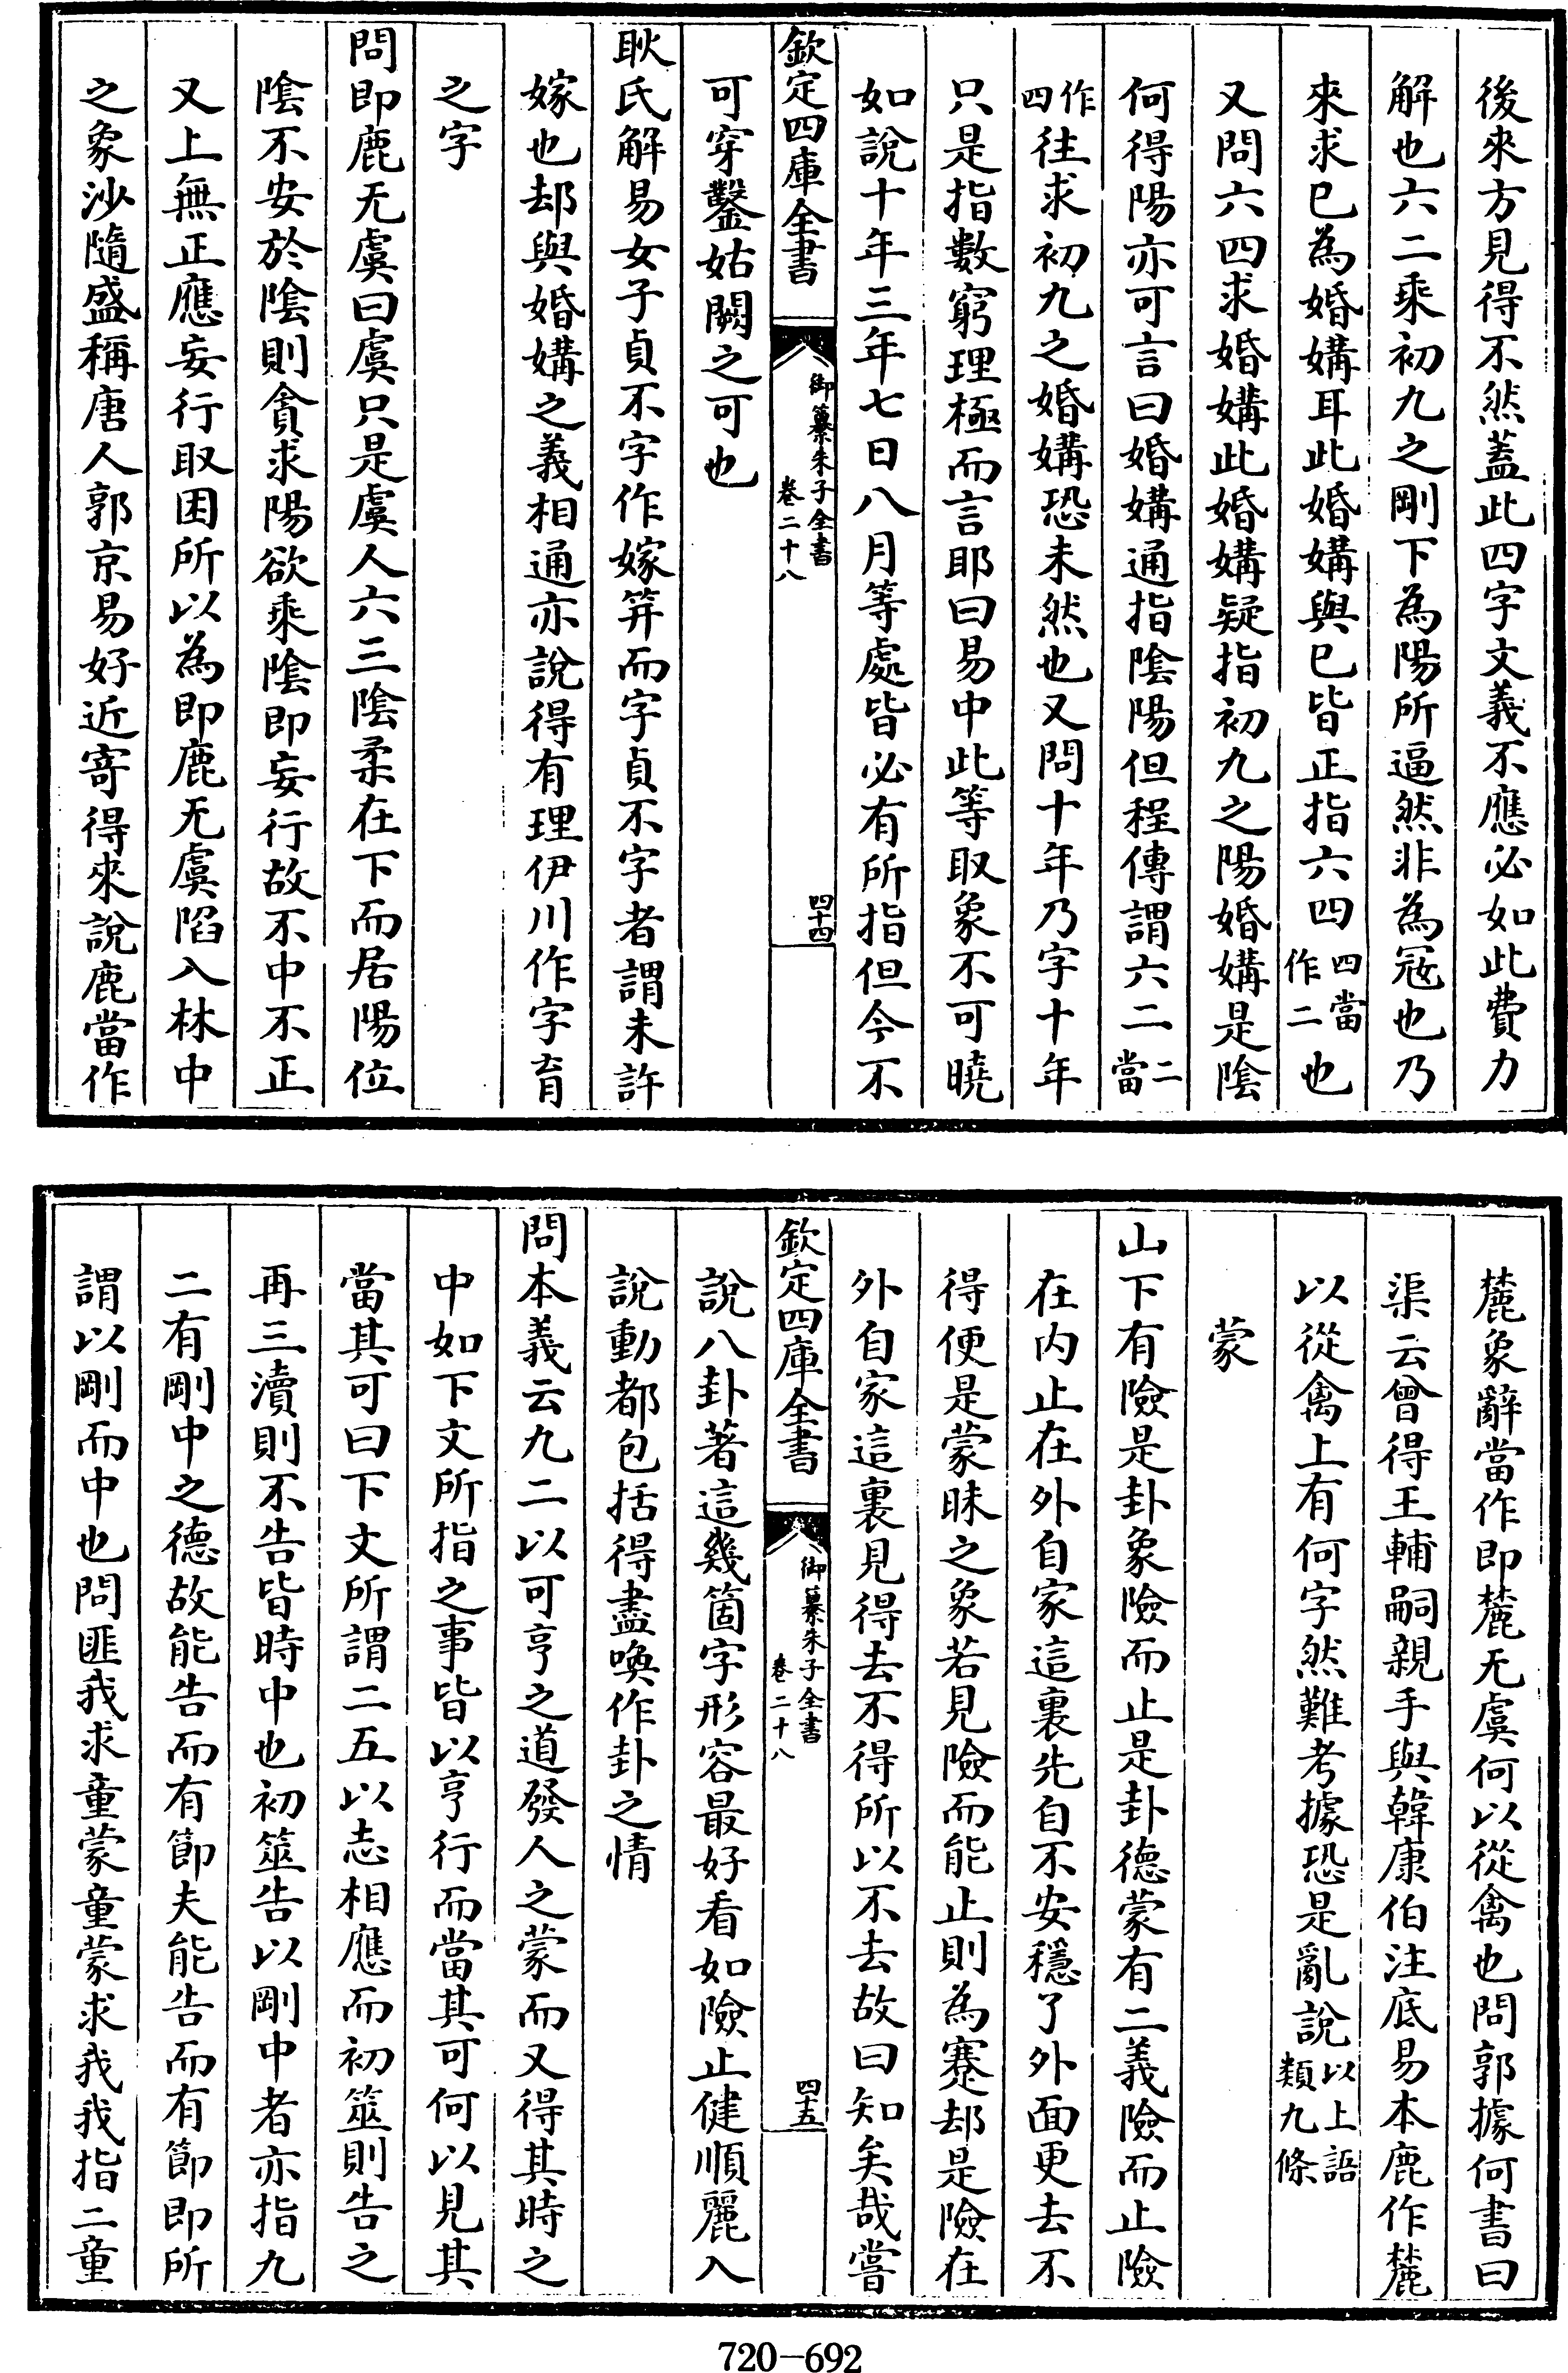 後來方見得不然蓋此四字文義不應必如此費力
解也六二乘初九之剛下為陽所逼然非為寇也乃
來求已為婚媾耳此婚媾與已皆正指六四四當作二也
又問六四求婚媾此婚媾疑指初九之陽婚媾是陰
何得陽亦可言曰婚媾通指陰陽但程傳謂六二二當
作四往求初九之婚媾恐未然也又問十年乃字十年
只是指數窮理極而言耶曰易中此等取象不可曉
如說十年三年七日八月等處皆必有所指但今不
欽定四庫全書
御纂朱子全書
卷二十八
四十四
可穿鑿姑闕之可也
耿氏解易女子貞不字作嫁笄而字貞不字者謂未許
嫁也却與婚媾之義相通亦說得有理伊川作字育
之字
問即鹿无虞曰虞只是虞人六三陰柔在下而居陽位
陰不安於陰則貪求陽欲乘陰即妄行故不中不正
又上無正應妄行取困所以為即鹿无虞陷入林中
之象沙隨盛稱唐人郭京易好近寄得來說鹿當作
麓象辭當作即麓无虞何以從禽也問郭據何書曰
渠云曾得王輔嗣親手與韓康伯注底易本鹿作麓
以從禽上有何字然難考據恐是亂說以上語類九條
蒙
山下有險是卦象險而止是卦德蒙有二義險而止險
在内止在外自家這裏先自不安穩了外面更去不
得便是蒙昧之象若見險而能止則為蹇却是險在
外自家這裏見得去不得所以不去故曰知矣哉嘗
欽定四庫全書
御纂朱子全書
卷二十八
四十五
說八卦著這幾箇字形容最好看如險止健順麗入
說動都包括得盡喚作卦之情
問本義云九二以可亨之道發人之蒙而又得其時之
中如下文所指之事皆以亨行而當其可何以見其
當其可曰下文所謂二五以志相應而初筮則告之
再三瀆則不告皆時中也初筮告以剛中者亦指九
二有剛中之德故能告而有節夫能告而有節即所
謂以剛而中也問匪我求童蒙童蒙求我我指二童
720-692